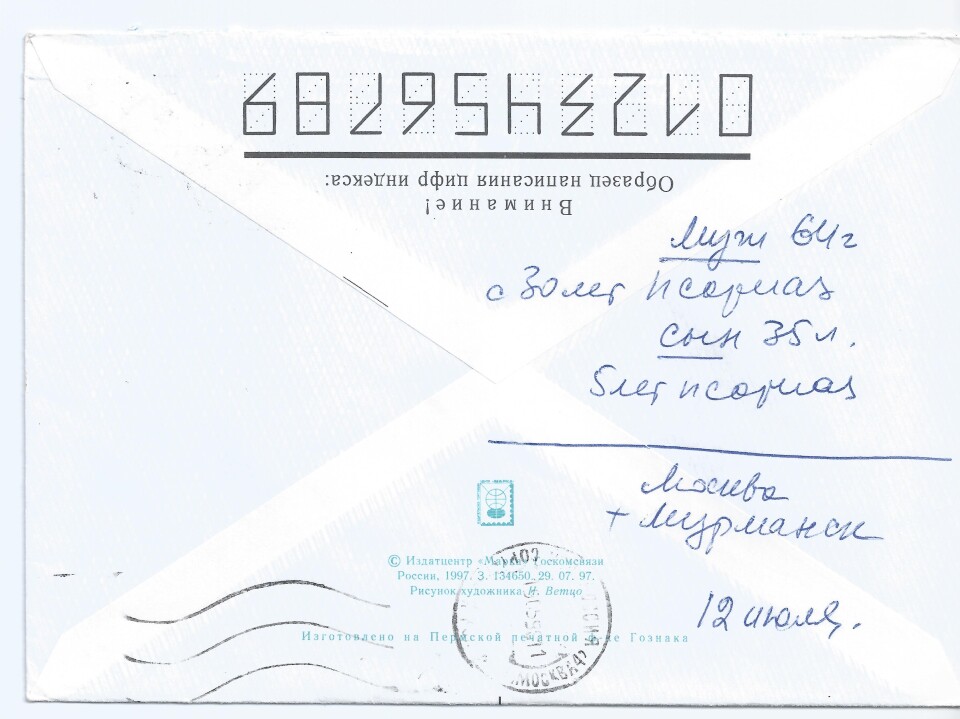 0123456789
Образец написания цифр индекса:
Внимание!
Муж 64г
с 30 лет псориаз
сын 35 л.
5 лет псориаз
Москва
+ Мурманск
© Издатцентр «Марка» Госкомсвязи
России, 1997. З. 134650. 29. 07. 97.
Рисунок художника И. Ветцо
12 июля.
Изготовлено на Пермской печатной ф-ке Гознака
МОСКВА